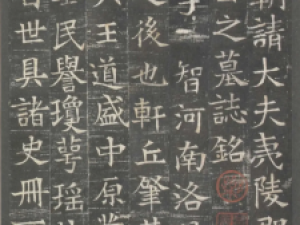 朝請大夫夷陵郡
君之墓誌銘
字智河南洛陽
之後也軒丘肇其
王道盛中原業
民譽瓊萼瑤
世具諸史冊